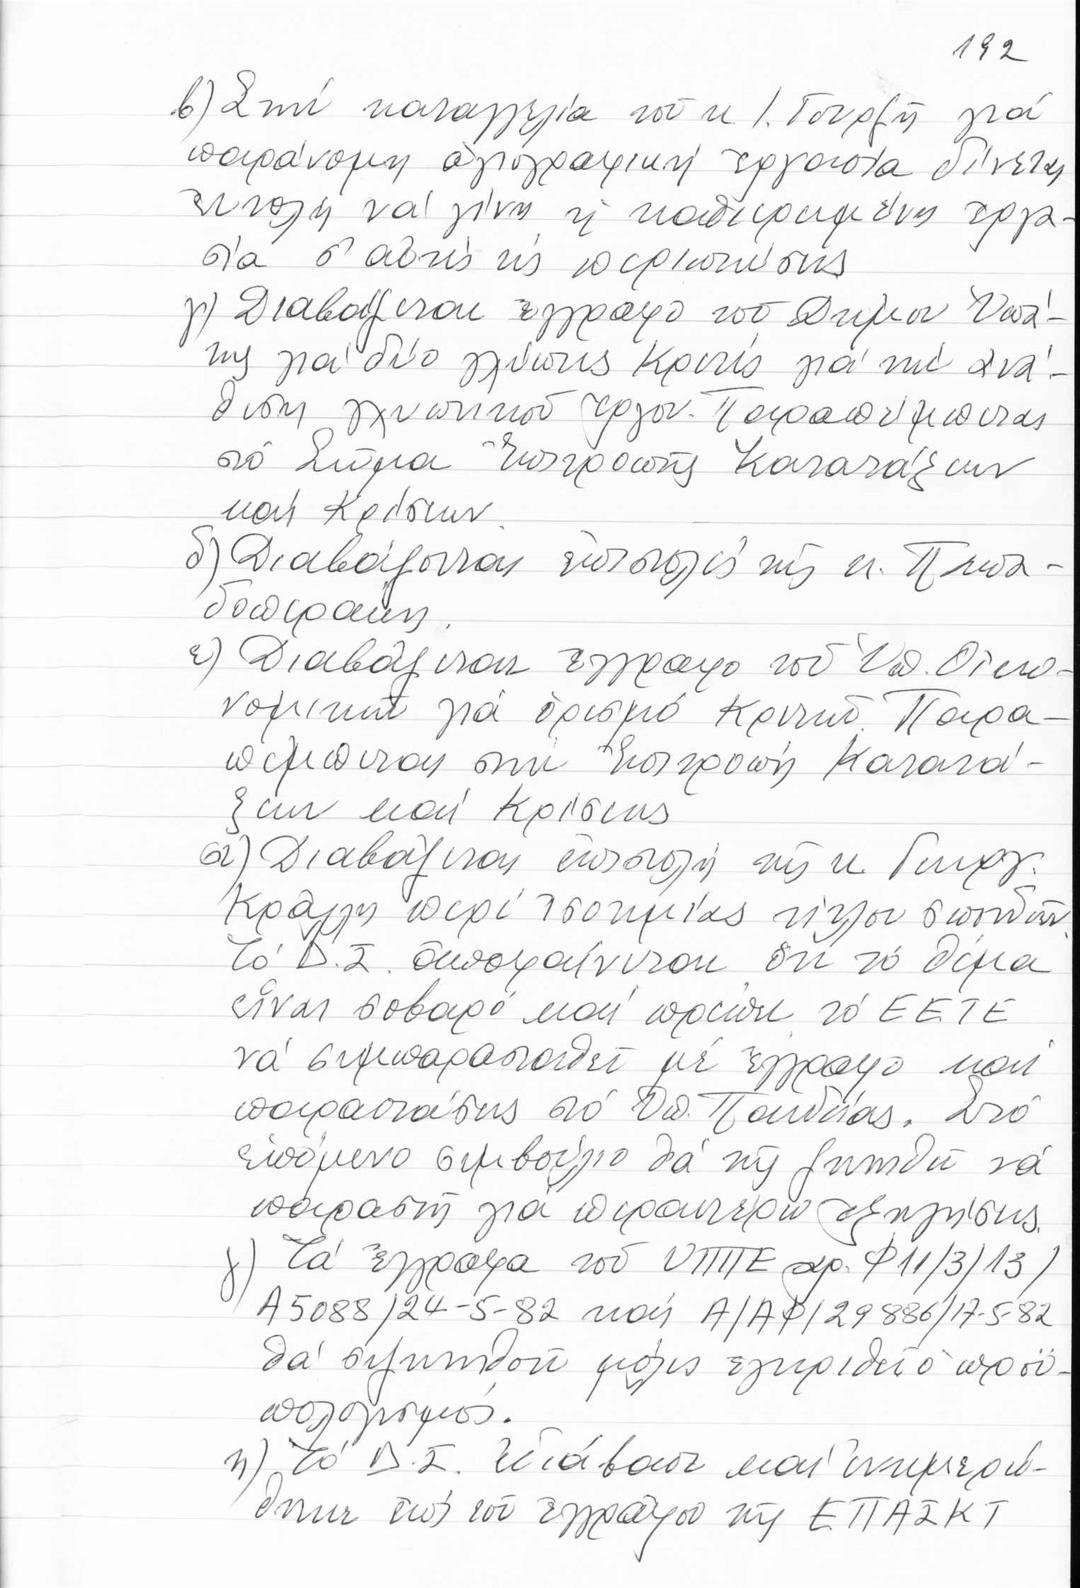 192
β) Στήν καταγγελία τοῦ κ. Ι. Γουρζῆ γιά
παράνομη ἁγιογραφική ἐργασία δίνεται
ἐντολή νά γίνη ἡ καθιερωμένη ἐργα-
σία σ' αὐτές τίς περιπτώσεις
γ) Διαβάζεται ἔγγραφο τοῦ Δήμου Ὑπά-
της γιά δύο γλύπτες Κριτές γιά τήν ἀνά-
θεση γλυπτικοῦ ἔργου. Παραπέμπεται
στό Σῶμα Ἐπιτροπῆς Κατατάξεων
καί Κρίσεων.
δ) Διαβάζονται ἐπιστολές τῆς κ. Παπα-
δοπεράκη.
ε) Διαβάζεται ἔγγραφο τοῦ Ὑπ. Οἰκο-
νομικῶν γιά ὁρισμό Κριτῶν. Παρα-
πέμπεται στήν Ἐπιτροπή Κατατά-
ξεων καί Κρίσεως
στ) Διαβάζεται ἐπιστολή τῆς κ. Γεωργ.
Κράλλη περί ἰσοτιμίας τίτλου σπουδῶν.
Τό Δ.Σ. ἀποφαίνεται ὅτι τό θέμα
εἶναι σοβαρό καί πρέπει τό ΕΕΤΕ
νά συμπαρασταθεῖ μέ ἔγγραφο καί
παραστάσεις στό Ὑπ. Παιδείας. Στό
ἑπόμενο συμβούλιο θά τῆς ζητηθῆ νά
παραστῆ γιά περαιτέρω ἐξηγήσεις.
ζ) Τά ἔγγραφα τοῦ ΥΠΠΕ αρ. Φ11/3/13/
Α5088/24-5-82 καί Α/ΑΦ/29886/17-5-82
θά συζητηθοῦν μόλις ἐγκριθεῖ ὁ προϋ-
πολογισμός.
η) Τό Δ.Σ. ἐδιάβασε καί ἐνημερώ-
θηκε ἐπί τοῦ ἐγγράφου τῆς ΕΠΑΣΚΤ